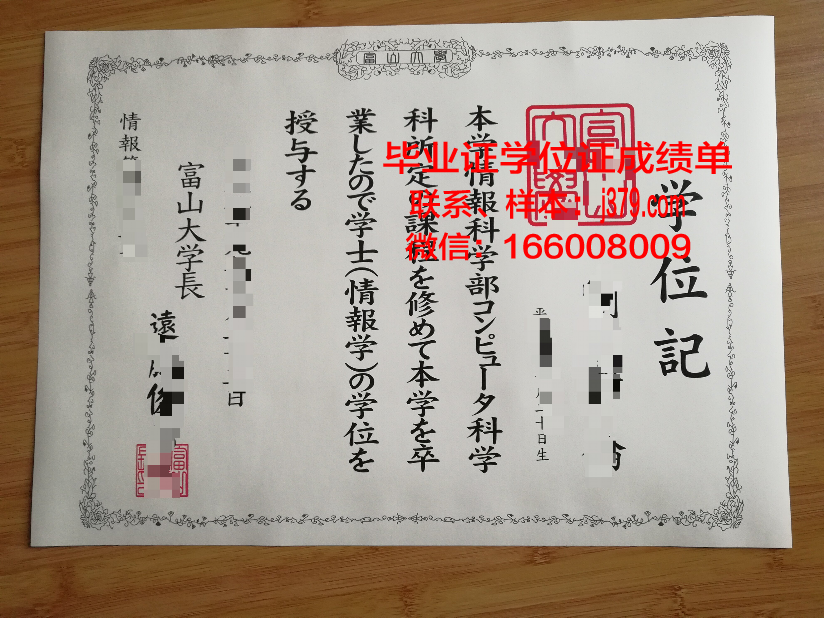 富山大學
学位記
本学情報科学部コンピュータ科学
科所定の課程を修めて本学を卒
業したので学士（情報学）の学位を
授与する
日
富山大学長
遠
情報
十日生
毕业证学位证成绩单
联系、样本：j379.com
微信：166008009